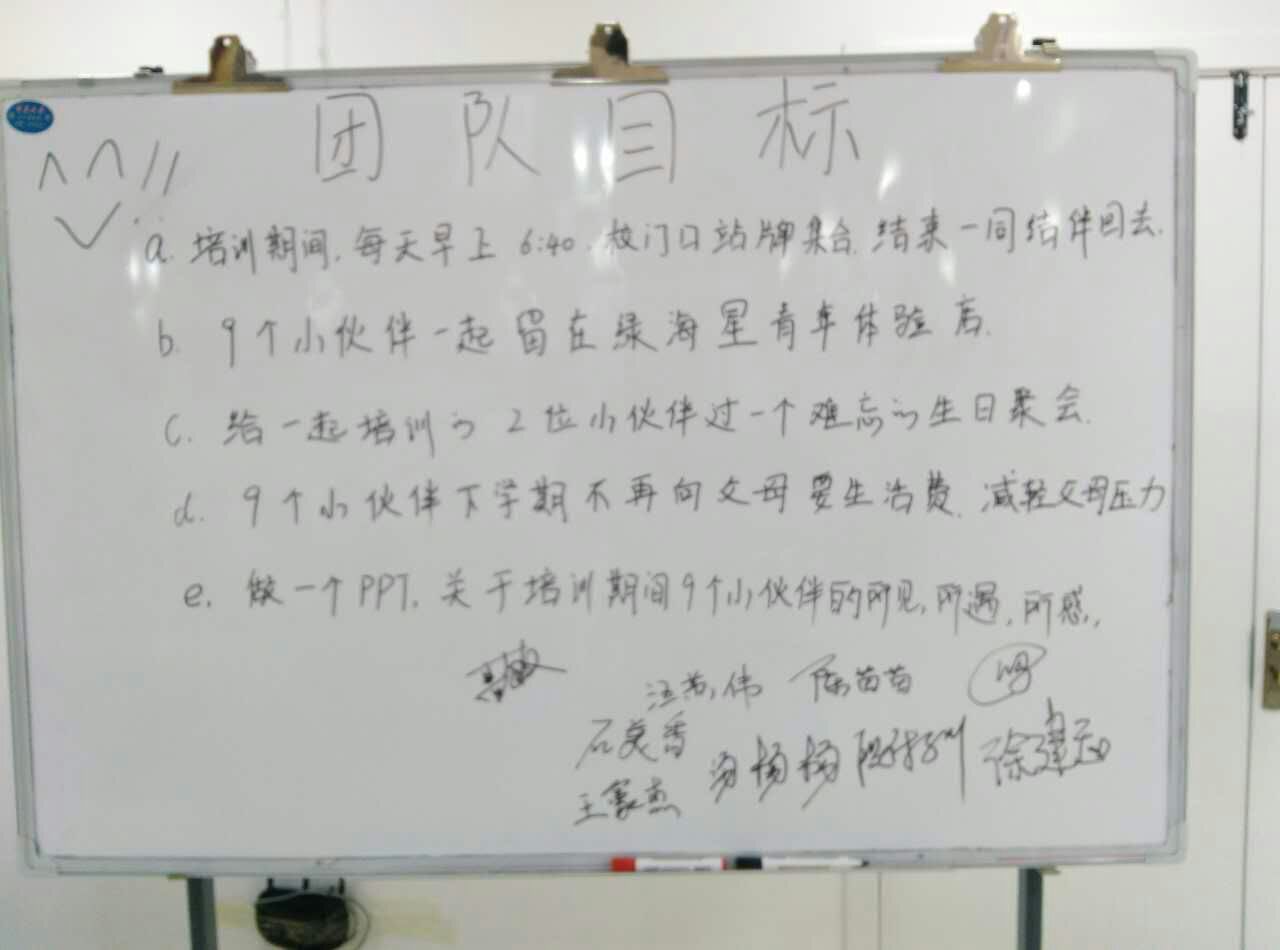 团队目标
a. 培训期间,每天早上6:40,校门口站牌集合.结束一同结伴回去.
b. 9个小伙伴一起留在绿海星青年体验店.
c. 给一起培训的2位小伙伴过一个难忘的生日聚会.
d. 9个小伙伴下学期不再向父母要生活费.减轻父母压力
e. 做一个PPT.关于培训期间9个小伙伴的所见,所遇,所感,
陈苗苗
石美香
杨杨
徐建